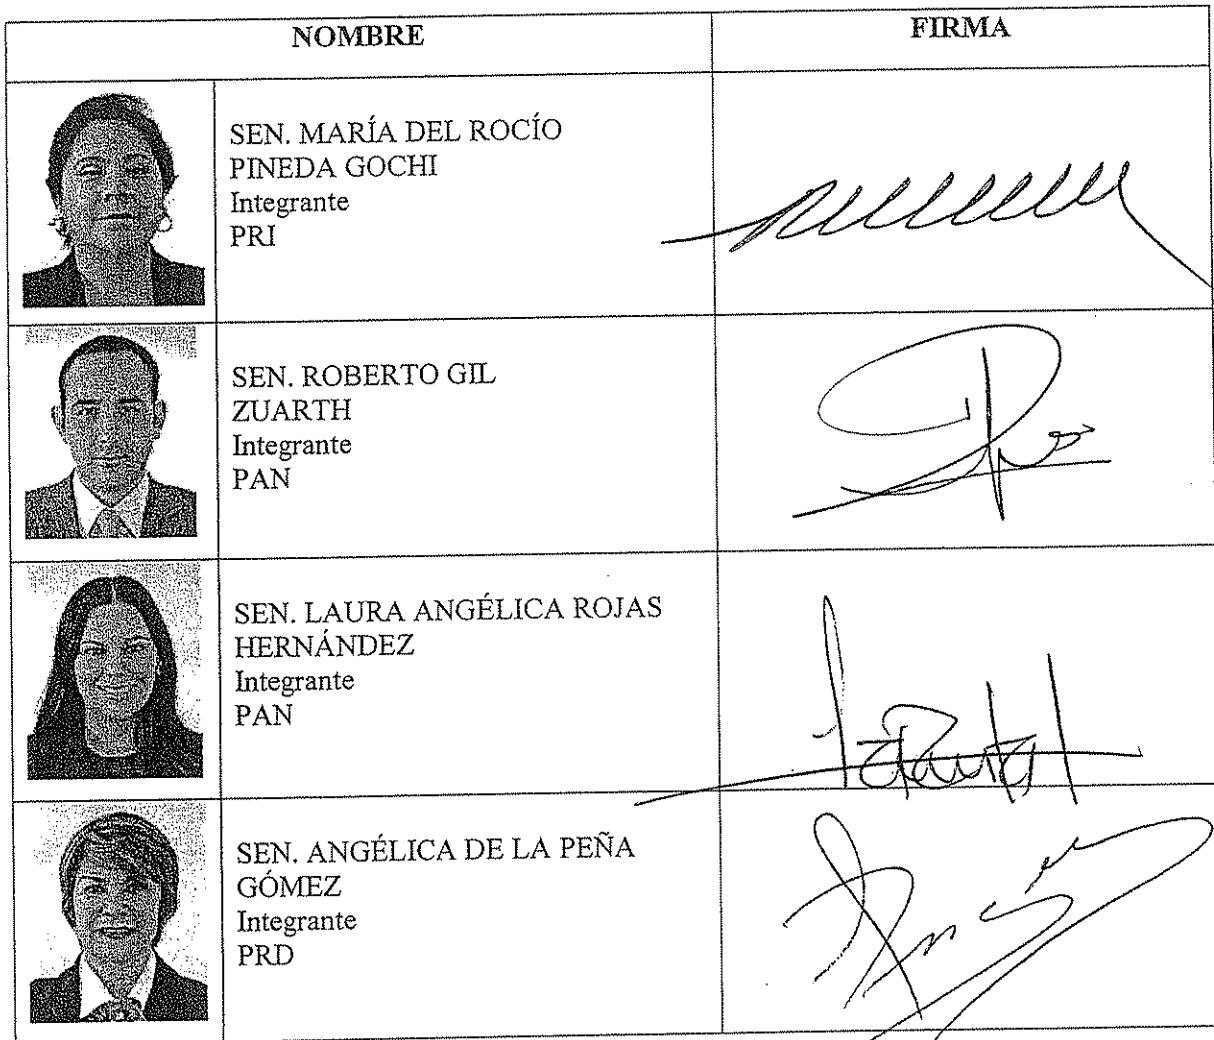 NOMBRE
FIRMA
SEN. MARÍA DEL ROCÍO
PINEDA GOCHI
Integrante
PRI
SEN. ROBERTO GIL
ZUARTH
Integrante
PAN
SEN. LAURA ANGÉLICA ROJAS
HERNÁNDEZ
Integrante
PAN
SEN. ANGÉLICA DE LA PEÑA
GÓMEZ
Integrante
PRD